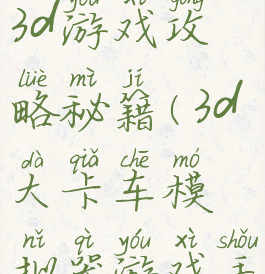 yóu xì gōng
3d游戏攻
lüè mì jí
略秘籍(3d
dà qiǎ chē mó
大卡车模
nǐ qì yóu xì shǒu
拟器游戏手